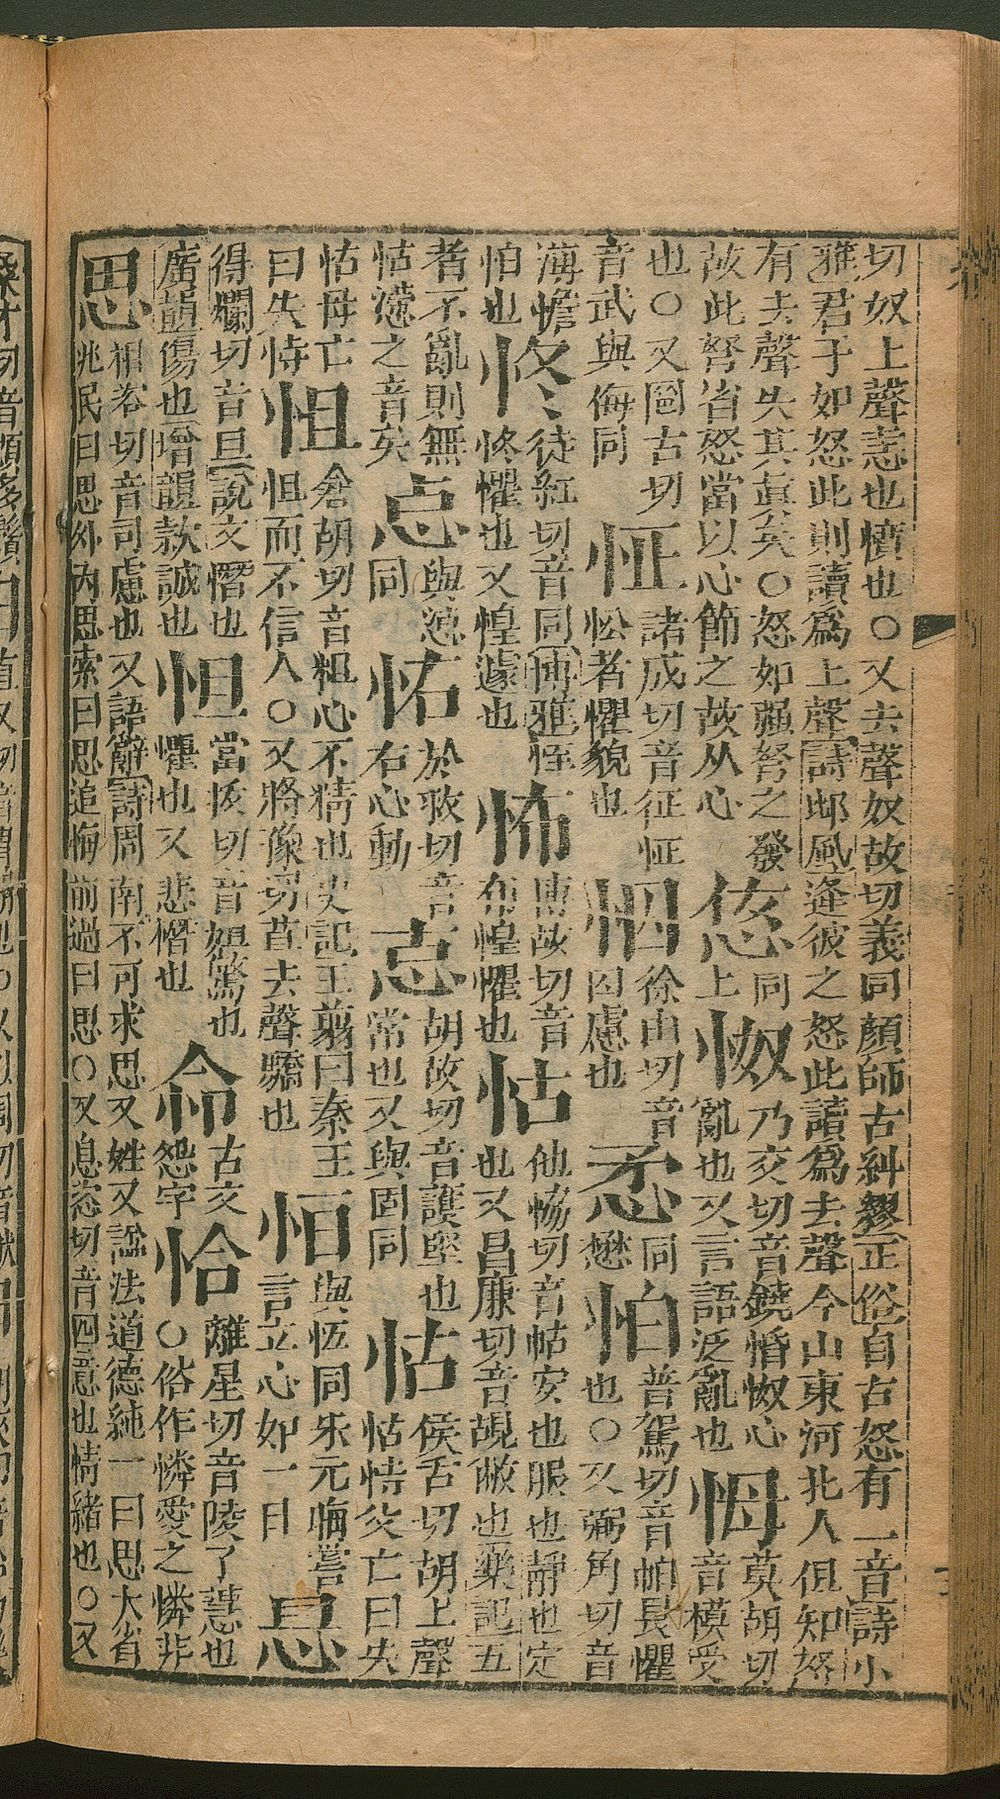 切奴上聲恚也憤也○又去聲奴故切義同顏師古糾繆正俗自古怒有二音詩小
雅君子如怒此則讀爲上聲詩邶風逢彼之怒此讀爲去聲今山東河北人但知怒
有去聲失其眞矣○怒如強弩之發
故此弩省怒當以心節之故从心
㤅同上
怓乃交切音鐃惛怓心亂也又言語泛亂也
㥆莫胡切音模受
也○又罔古切音武與侮同
怔諸成切音征怔忪者懼貌也
怞徐由切音囚慮也
㤄同懋
怕普駕切音帕畏懼也○又弼角切音
薄憺怕也
佟徒紅切音同博雅㤏佟懼也又惶遽也
怖博故切音布惶懼也
怗他協切音帖安也服也靜也定也又昌廉切音覘敝也樂記五
者不亂則無怗懘之音矣
㤐與怱同
㤉於敎切音右心動
㤀胡故切音護堅也常也又與固同
怙侯古切胡上聲怙恃父亡曰失
怙母亡曰失恃
怚倉胡切音粗心不精也史記王翦曰秦王怚而不信人○又將豫切苴去聲驕也
恒與恆同朱元晦嘗言立心如一日
㤙
得爛切音旦說文憯也
廣韻傷也增韻款誠也
怛當拔切音妲驚也懼也又悲憯也
㤓古文怨字
怜離星切音陵了慧也○俗作憐愛之憐非
思相咨切音司慮也又語辭詩周南不可求思又姓又諡法道德純一曰思大省
兆民曰思外內思索曰思追悔前過曰思○又息恣切音四意也情緒也○又